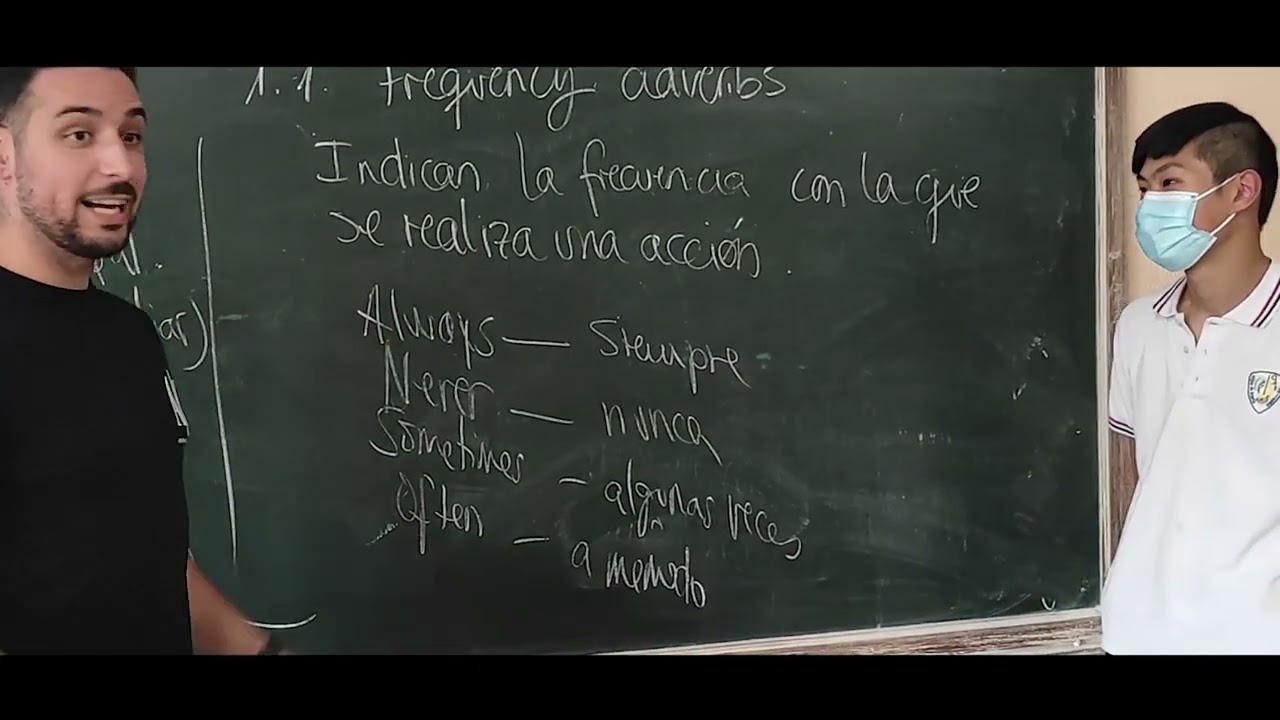 1.1. Frequency adverbs
Indican la frecuencia con la que
se realiza una acción.
iar)
Always — Siempre
Never — nunca
Sometimes — algunas veces
Often — a menudo